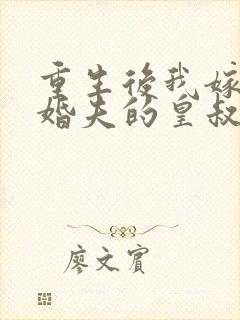 重生後我嫁
婚夫的皇叔
廖文賓